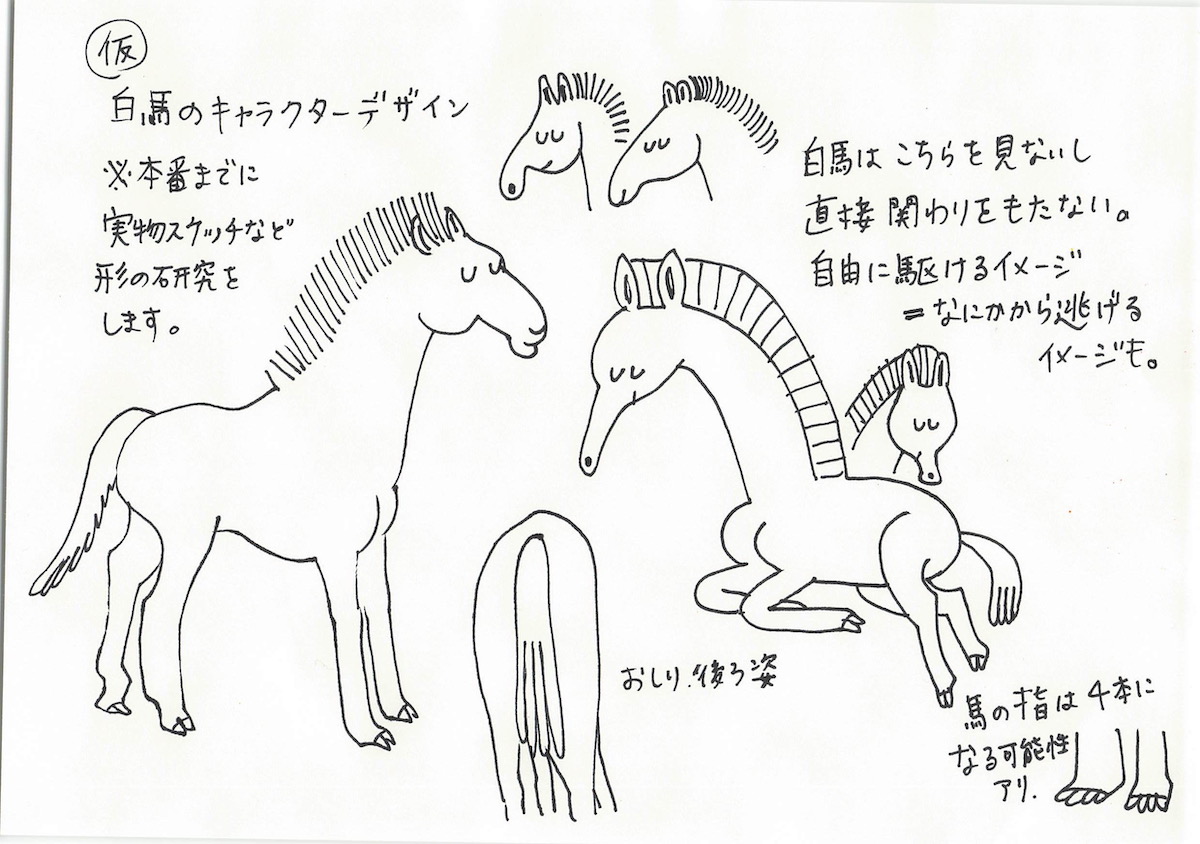 仮
白馬のキャラクターデザイン
※本番までに
実物スケッチなど
形の研究を
します。
白馬は こちらを見ないし
直接関わりをもたない。
自由に駆けるイメージ
=なにかから逃げる
イメージも。
おしり.後ろ姿
馬の指は4本に
なる可能性
アリ.